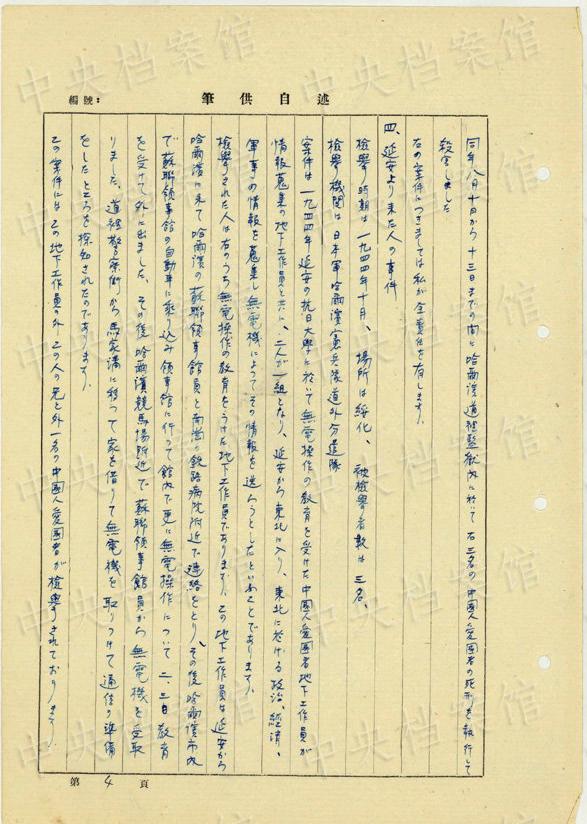 編號:
筆供自述
同年八月十日から十三日までの間に哈爾濱道裡監獄内に於いて右三名の中國人愛國者の死刑を執行して
殺害しました
右の案件につきましては私が全責任を有します.
四、延安より来た人の事件
檢擧時期は一九四四年十月、場所は綏化、被檢擧者数は三名、
檢擧機関は日本軍哈爾濱憲兵隊道外分遣隊
案件は一九四四年延安の抗日大學に於いて無電操作の教育を受けた中國人愛國者地下工作員が
情報蒐集の地下工作員と共に、二人が一組となり、延安から東北に入り、東北に於ける政治、經濟、
軍事の情報を蒐集し無電機によってその情報を送らうとしたといふことであります.
檢擧された人は右のうち無電操作の教育をうけた地下工作員であります.この地下工作員は延安から
哈爾濱に来て哈爾濱の蘇聯領事館員と南崗の鉄路病院附近で連絡をとり、その後哈爾濱市内
で蘇聯領事館の自動車に乗り込み領事館に行って館内で更に無電操作について二、三日教育
を受けて外に出ました、その後哈爾濱競馬場附近で蘇聯領事館員から無電機を受取
りました、道裡警察街から馬家溝に移って家を借りて無電機を取りつけて通信の準備
をしたところを探知されたのであります.
この案件にはこの地下工作員の外この人の兄と外一名の中國人愛國者が檢擧されております.
第 4 頁
中央档案馆